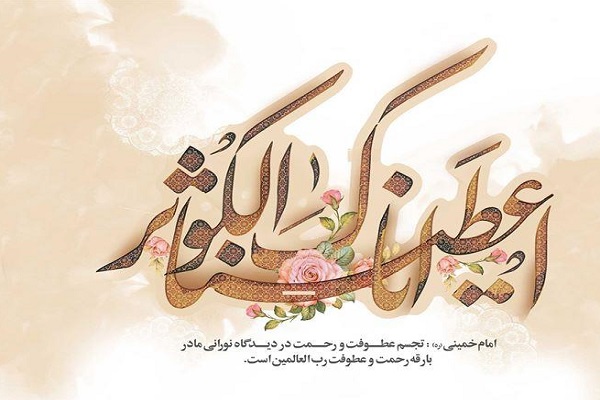 انا اعطیناک الکوثر
امام خمینی (ره) : تجسم عطوفت و رحمت در دیدگاه نورانی مادر
بارقه رحمت و عطوفت رب العالمین است.